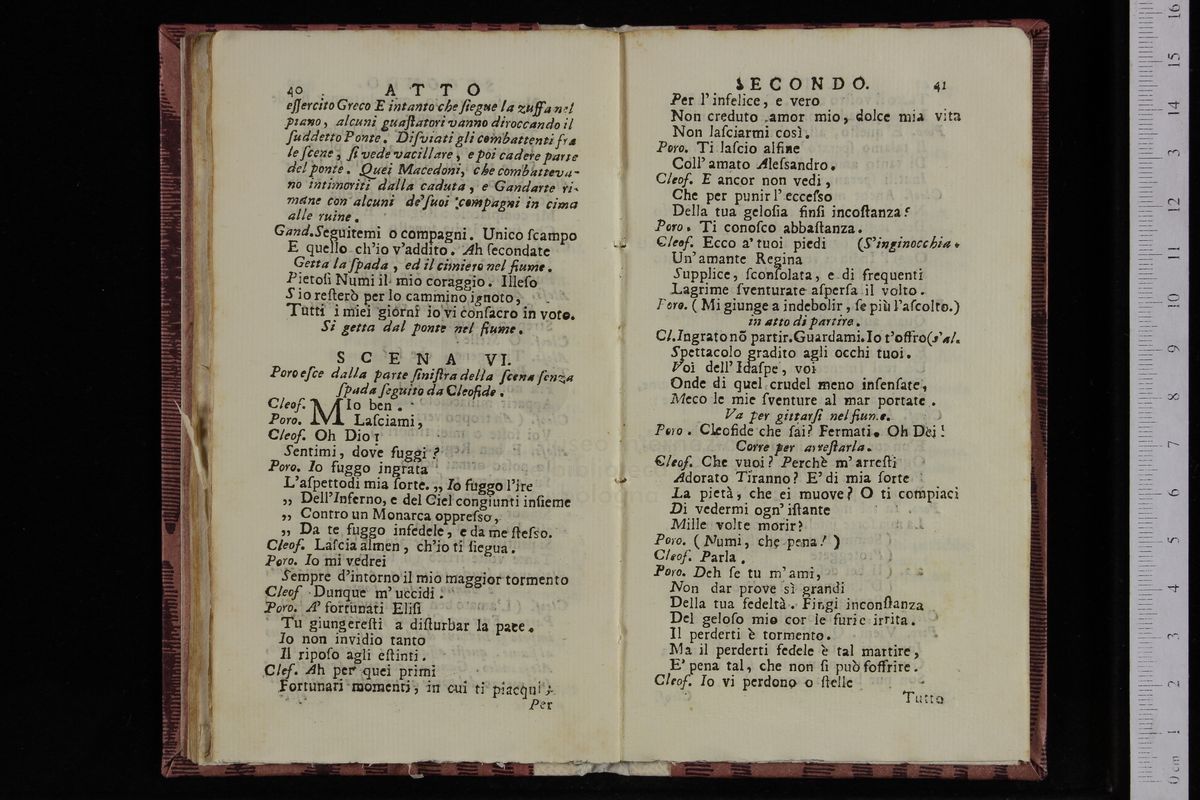 40 ATTO
eſſercito Greco E intanto che ſiegue la zuffa nel
piano, alcuni guaſtatori vanno diroccando il
ſuddetto Ponte. Diſviati gli combattenti fra
le ſcene, ſi vede vacillare, e poi cadere parte
del ponte. Quei Macedoni, che combatteva-
no intimoriti dalla caduta, e Gandarte ri-
mane con alcuni de'ſuoi compagni in cima
alle ruine.
Gand. Seguitemi o compagni. Unico ſcampo
E quello ch'io v'addito. Ah ſecondate
Getta la ſpada, ed il cimiero nel fiume.
Pietoſi Numi il mio coraggio. Illeſo
S'io reſterò per lo cammino ignoto,
Tutti i miei giorni io vi conſacro in voto.
Si getta dal ponte nel fiume.
SCENA VI.
Poro eſce dalla parte ſiniſtra della ſcena ſenza
ſpada ſeguito da Cleofide.
Cleof. MIo ben.
Poro. Laſciami,
Cleof. Oh Dio!
Sentimi, dove fuggi?
Poro. Io fuggo ingrata
L'aſpetto di mia ſorte. „ Io fuggo l'ire
„ Dell'Inferno, e del Ciel congiunti inſieme
„ Contro un Monarca oppreſso,
„ Da te fuggo infedele, e da me ſteſso.
Cleof. Laſcia almen, ch'io ti ſiegua.
Poro. Io mi vedrei
Sempre d'intorno il mio maggior tormento
Cleof Dunque m'uccidi.
Poro. A' fortunati Eliſi
Tu giungereſti a diſturbar la pace.
Io non invidio tanto
Il ripoſo agli eſtinti.
Clef. Ah per quei primi
Fortunati momenti, in cui ti piacqui;
Per
SECONDO. 41
Per l'infelice, e vero
Non creduto amor mio, dolce mia vita
Non laſciarmi così.
Poro. Ti laſcio alfine
Coll'amato Aleſsandro.
Cleof. E ancor non vedi,
Che per punir l'ecceſso
Della tua geloſia finſi incoſtanza?
Poro. Ti conoſco abbaſtanza.
Cleof. Ecco a'tuoi piedi (S'inginocchia.
Un'amante Regina
Supplice, ſconſolata, e di frequenti
Lagrime ſventurate aſperſa il volto.
Poro. (Mi giunge a indebolir, ſe più l'aſcolto.)
in atto di partire.
Cl. Ingrato nõ partir. Guardami. Io t'offro (s'al.
Spettacolo gradito agli occhi tuoi.
Voi dell'Idaſpe, voi
Onde di quel crudel meno inſenſate,
Meco le mie ſventure al mar portate.
Va per gittarſi nel fiume.
Poro. Cleofide che fai? Fermati. Oh Dei!
Corre per arreſtarla.
Cleof. Che vuoi? Perchè m'arreſti
Adorato Tiranno? E' di mia ſorte
La pietà, che ei muove? O ti compiaci
Di vedermi ogn'iſtante
Mille volte morir?
Poro. (Numi, che pena!)
Cleof. Parla.
Poro. Deh ſe tu m'ami,
Non dar prove sì grandi
Della tua fedeltà. Fingi inconſtanza
Del geloſo mio cor le furie irrita.
Il perderti è tormento.
Ma il perderti fedele è tal martire,
E' pena tal, che non ſi può ſoffrire.
Cleof. Io vi perdono o ſtelle
Tutto
0 cm 1 2 3 4 5 6 7 8 9 10 11 12 13 14 15 16